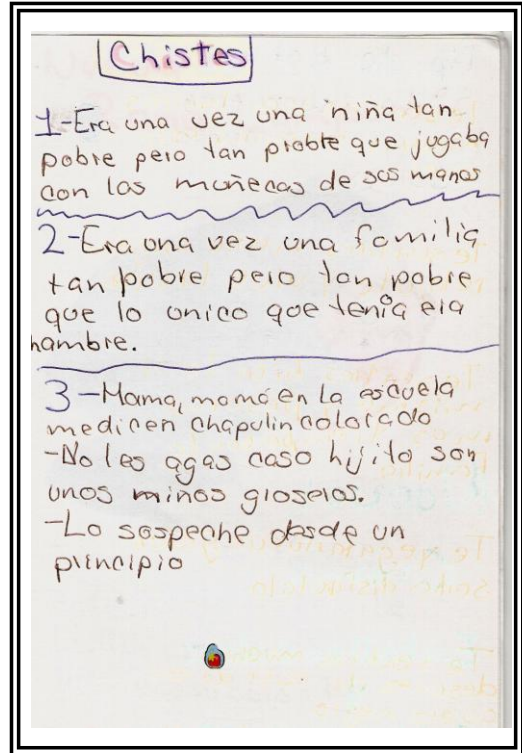 Chistes
1-Era una vez una niña tan
pobre pero tan proble que jugaba
con las muñecas de sus manos
2-Era una vez una familia
tan pobre pero tan pobre
que lo unico que tenia era
hambre.
3-Mama, mamá en la escuela
medicen chapulin colorado
-No les agas caso hijito son
unos minos groseros.
-Lo sospeche desde un
principio